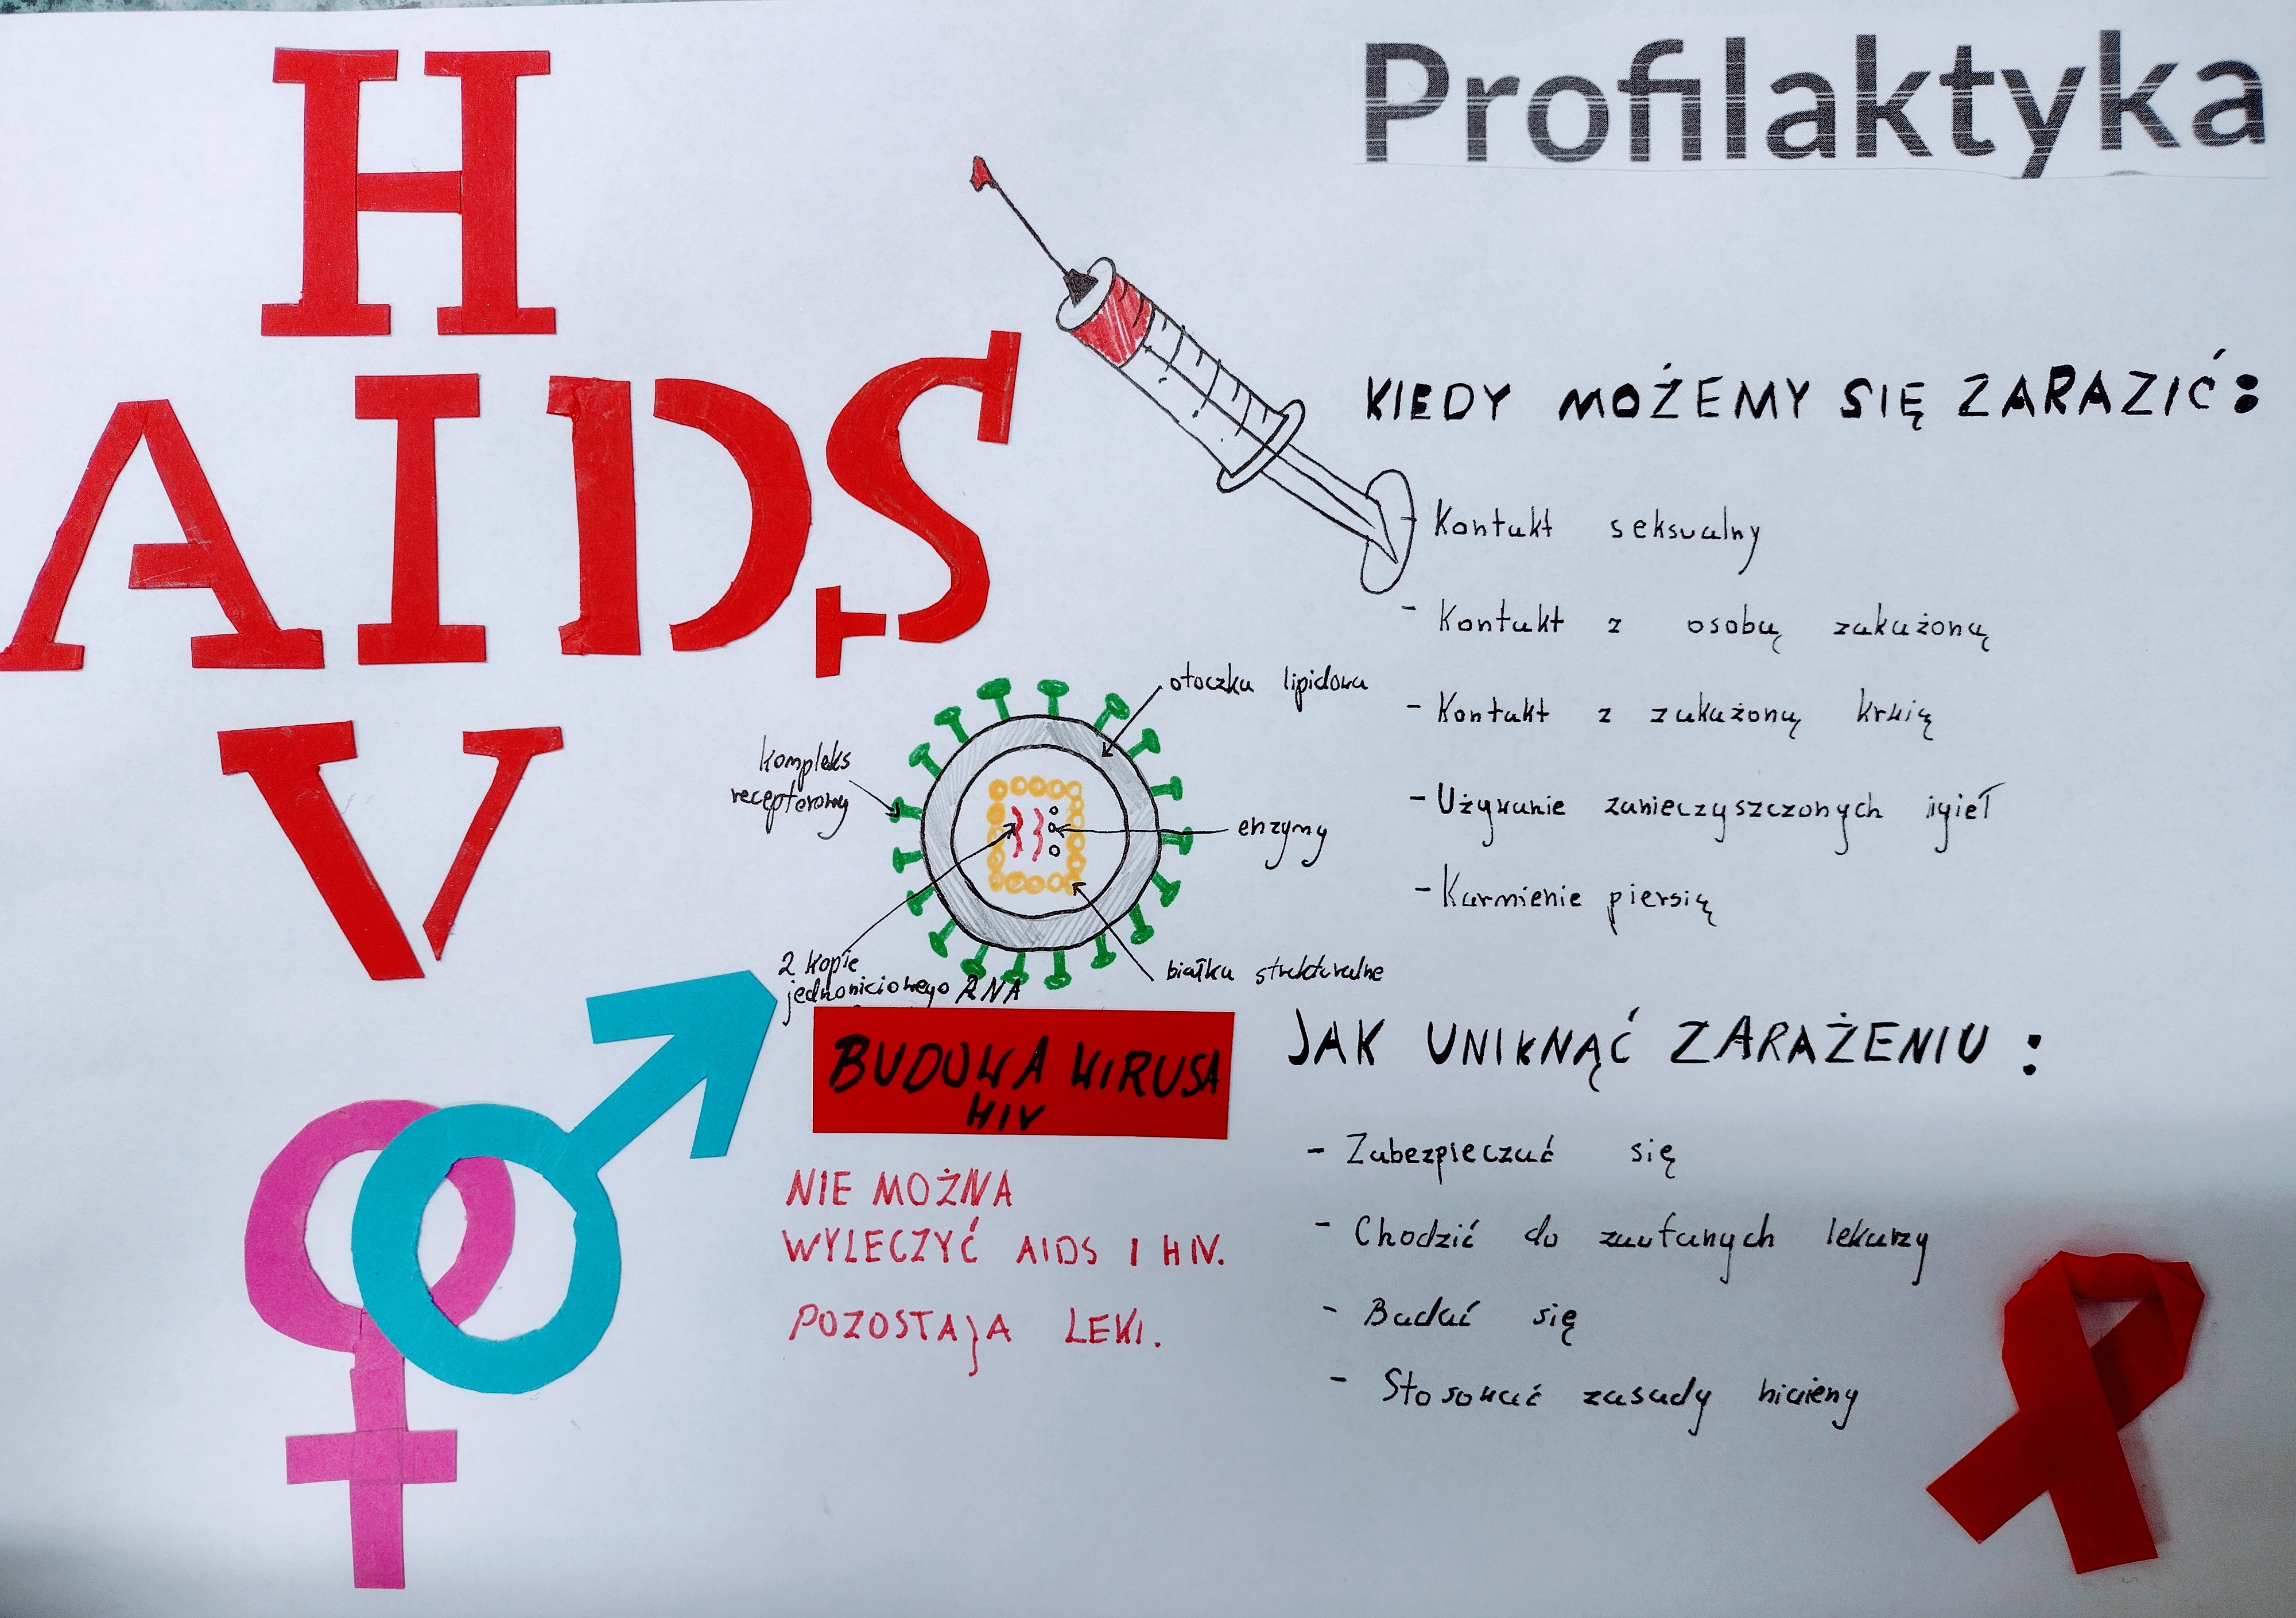 H
AIDS
V
Profilaktyka
KIEDY MOŻEMY SIĘ ZARAZIĆ:
- Kontakt seksualny
- Kontakt z osobą zakażoną
- Kontakt z zakażoną krwią
- Używanie zanieczyszczonych igieł
- Karmienie piersią
otoczka lipidowa
kompleks
receptorowy
enzymy
2 kopie
jednoniciowego RNA
białka strukturalne
BUDOWA WIRUSA
HIV
NIE MOŻNA
WYLECZYĆ AIDS I HIV.
POZOSTAJĄ LEKI.
JAK UNIKNĄĆ ZARAŻENIU :
- Zabezpieczać się
- Chodzić do zaufanych lekarzy
- Badać się
- Stosować zasady higieny